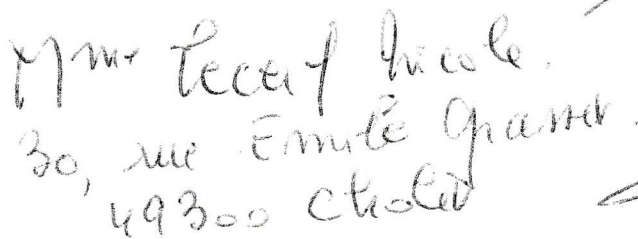 Mme Lecerf Nicole.
30, rue Emile Grasset.
49300 Cholet